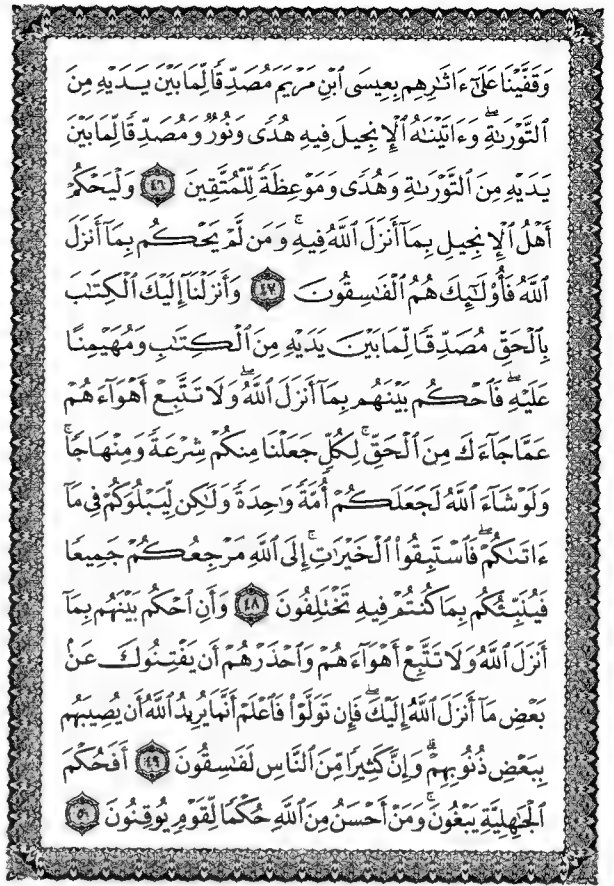 وَقَفَّيْنَا عَلَىٰٓ ءَاثَٰرِهِم بِعِيسَى ٱبْنِ مَرْيَمَ مُصَدِّقًا لِّمَا بَيْنَ يَدَيْهِ مِنَ
ٱلتَّوْرَىٰةِ ۖ وَءَاتَيْنَٰهُ ٱلْإِنجِيلَ فِيهِ هُدًى وَنُورٌ وَمُصَدِّقًا لِّمَا بَيْنَ
يَدَيْهِ مِنَ ٱلتَّوْرَىٰةِ وَهُدًى وَمَوْعِظَةً لِّلْمُتَّقِينَ ٤٦ وَلْيَحْكُمْ
أَهْلُ ٱلْإِنجِيلِ بِمَآ أَنزَلَ ٱللَّهُ فِيهِ ۚ وَمَن لَّمْ يَحْكُم بِمَآ أَنزَلَ
ٱللَّهُ فَأُو۟لَٰٓئِكَ هُمُ ٱلْفَٰسِقُونَ ٤٧ وَأَنزَلْنَآ إِلَيْكَ ٱلْكِتَٰبَ
بِٱلْحَقِّ مُصَدِّقًا لِّمَا بَيْنَ يَدَيْهِ مِنَ ٱلْكِتَٰبِ وَمُهَيْمِنًا
عَلَيْهِ ۖ فَٱحْكُم بَيْنَهُم بِمَآ أَنزَلَ ٱللَّهُ ۖ وَلَا تَتَّبِعْ أَهْوَآءَهُمْ
عَمَّا جَآءَكَ مِنَ ٱلْحَقِّ ۚ لِكُلٍّ جَعَلْنَا مِنكُمْ شِرْعَةً وَمِنْهَاجًا ۚ
وَلَوْ شَآءَ ٱللَّهُ لَجَعَلَكُمْ أُمَّةً وَٰحِدَةً وَلَٰكِن لِّيَبْلُوَكُمْ فِى مَآ
ءَاتَىٰكُمْ ۖ فَٱسْتَبِقُوا۟ ٱلْخَيْرَٰتِ ۚ إِلَى ٱللَّهِ مَرْجِعُكُمْ جَمِيعًا
فَيُنَبِّئُكُم بِمَا كُنتُمْ فِيهِ تَخْتَلِفُونَ ٤٨ وَأَنِ ٱحْكُم بَيْنَهُم بِمَآ
أَنزَلَ ٱللَّهُ وَلَا تَتَّبِعْ أَهْوَآءَهُمْ وَٱحْذَرْهُمْ أَن يَفْتِنُوكَ عَنۢ
بَعْضِ مَآ أَنزَلَ ٱللَّهُ إِلَيْكَ ۖ فَإِن تَوَلَّوْا۟ فَٱعْلَمْ أَنَّمَا يُرِيدُ ٱللَّهُ أَن يُصِيبَهُم
بِبَعْضِ ذُنُوبِهِمْ ۗ وَإِنَّ كَثِيرًا مِّنَ ٱلنَّاسِ لَفَٰسِقُونَ ٤٩ أَفَحُكْمَ
ٱلْجَٰهِلِيَّةِ يَبْغُونَ ۚ وَمَنْ أَحْسَنُ مِنَ ٱللَّهِ حُكْمًا لِّقَوْمٍ يُوقِنُونَ ٥٠